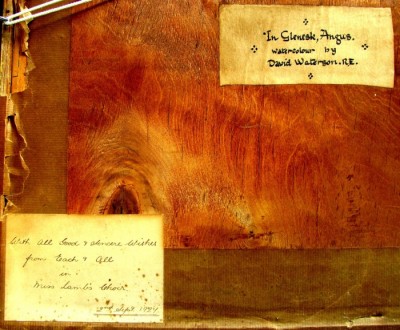 In Glenesk, Angus.
watercolour by
David Waterson. R.E.
With All Good & Sincere Wishes
from Each & All
in
Miss Lamb's Choir
Sept